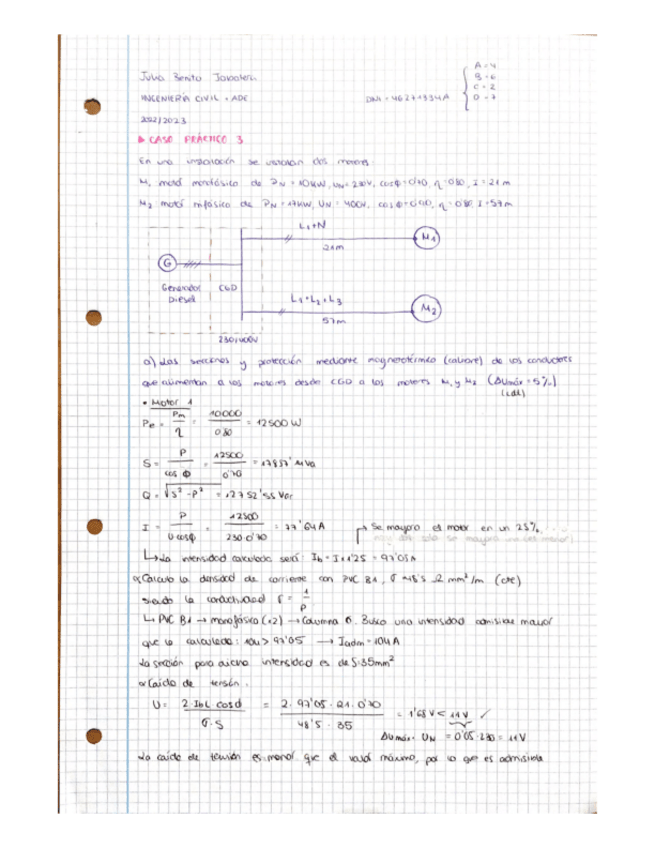 Julia Benito
INGENIERÍA CIVIL + ADE
2022/2023
A = 4
B = 6
C = 2
D = 7
CASO PRÁCTICO 3
En una instalación se instalan dos motores
M₁ motor monofásico de PN = 10 kW, UN = 230V, cosφ = 0'70, η = 0'80, I = 21 m
M₂ motor trifásico de PN = 17 kW, UN = 400V, cosφ = η = I = 57 m
L₁+N
M₁
21m
G
Generador Diesel
CGD
L₁+L₂+L₃
M₂
57m
230/400V
a) Las secciones y protección mediante magnetotérmico (calibre) de los conductores
que alimentan a los motores desde CGD a los motores M₁ y M₂ (ΔUmáx = 5%)
• Motor 1
Pe = Pm/η = 10000/0'80 = 12500 W
S = P/cos Φ = 12500/0'70 = 17857 Va
Q = √S² - P² = 12752'55 Var
I = P/U cosφ = 12500/230·0'70 = 77'64 A
Se mayora el motor en un 25%
La intensidad calculada será: Ib = I·1'25 = 97'05 A
Calculo la densidad de corriente con PVC B1, σ = 48'5 Ω mm²/m (cte)
siendo la conductividad σ = 1/ρ
PVC B1 → monofásico (x2) → Columna 6. Busco una intensidad admisible mayor
que la calculada: 104 > 97'05 → Iadm = 104 A
La sección para dicha intensidad es de S = 35 mm²
Caída de tensión.
U = 2·Ib·L·cosφ/σ·S = 2·97'05·21·0'70/48'5·35 = 1'68 V < 11 V ✓
ΔUmáx · UN = 0'05·230 = 11V
La caída de tensión es menor que el valor máximo, por lo que es admisible